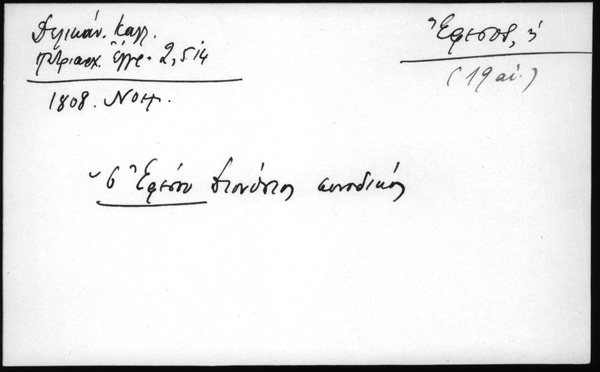 Δελικάν. Καλλ.
πατριαρχ. ἔγγρ. 2, 514
Ἔφεσος, ἡ
(19 αἰ.)
1808. Νοεμ.
ὁ Ἐφέσου Διονύσιος συνοδικός